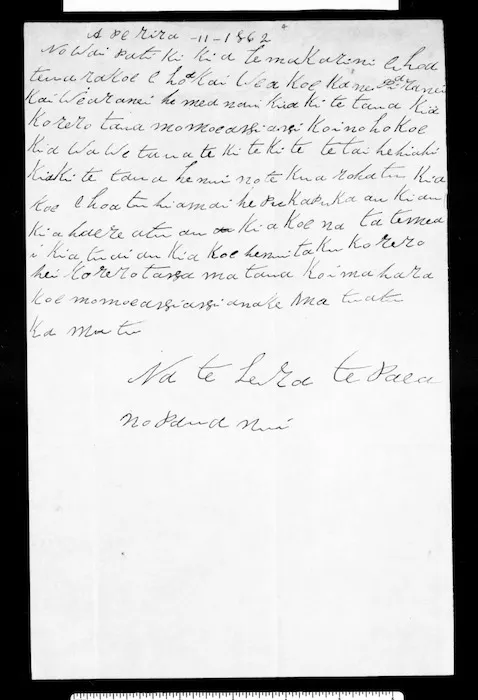 Aperira -11- 1862
No Wai pati ki Kia te makarini E hoa
tena rakoe E hoa Kai Wea Koe Kanei
Kai Wearanei he mea nui Kia Kite tana Kia
Korero tana momoe koinohokoe
Kia Wawe tana te Ki te Kite te tai hehiahi
Kia Ki te tana he nui no te Ku aroha tu Kia
Koe E hoa tu hiamai he Pukapuka au Ki au
Kia haere atu au Kia Koe na ta temea
i Kia tu ai au Kia Koe he nui taku Korero
hei Korero ma tana Koi mahara
Koe momoe anake Ma tu atu
Ka mutu
Na te Lura te Paea
no Paua nui